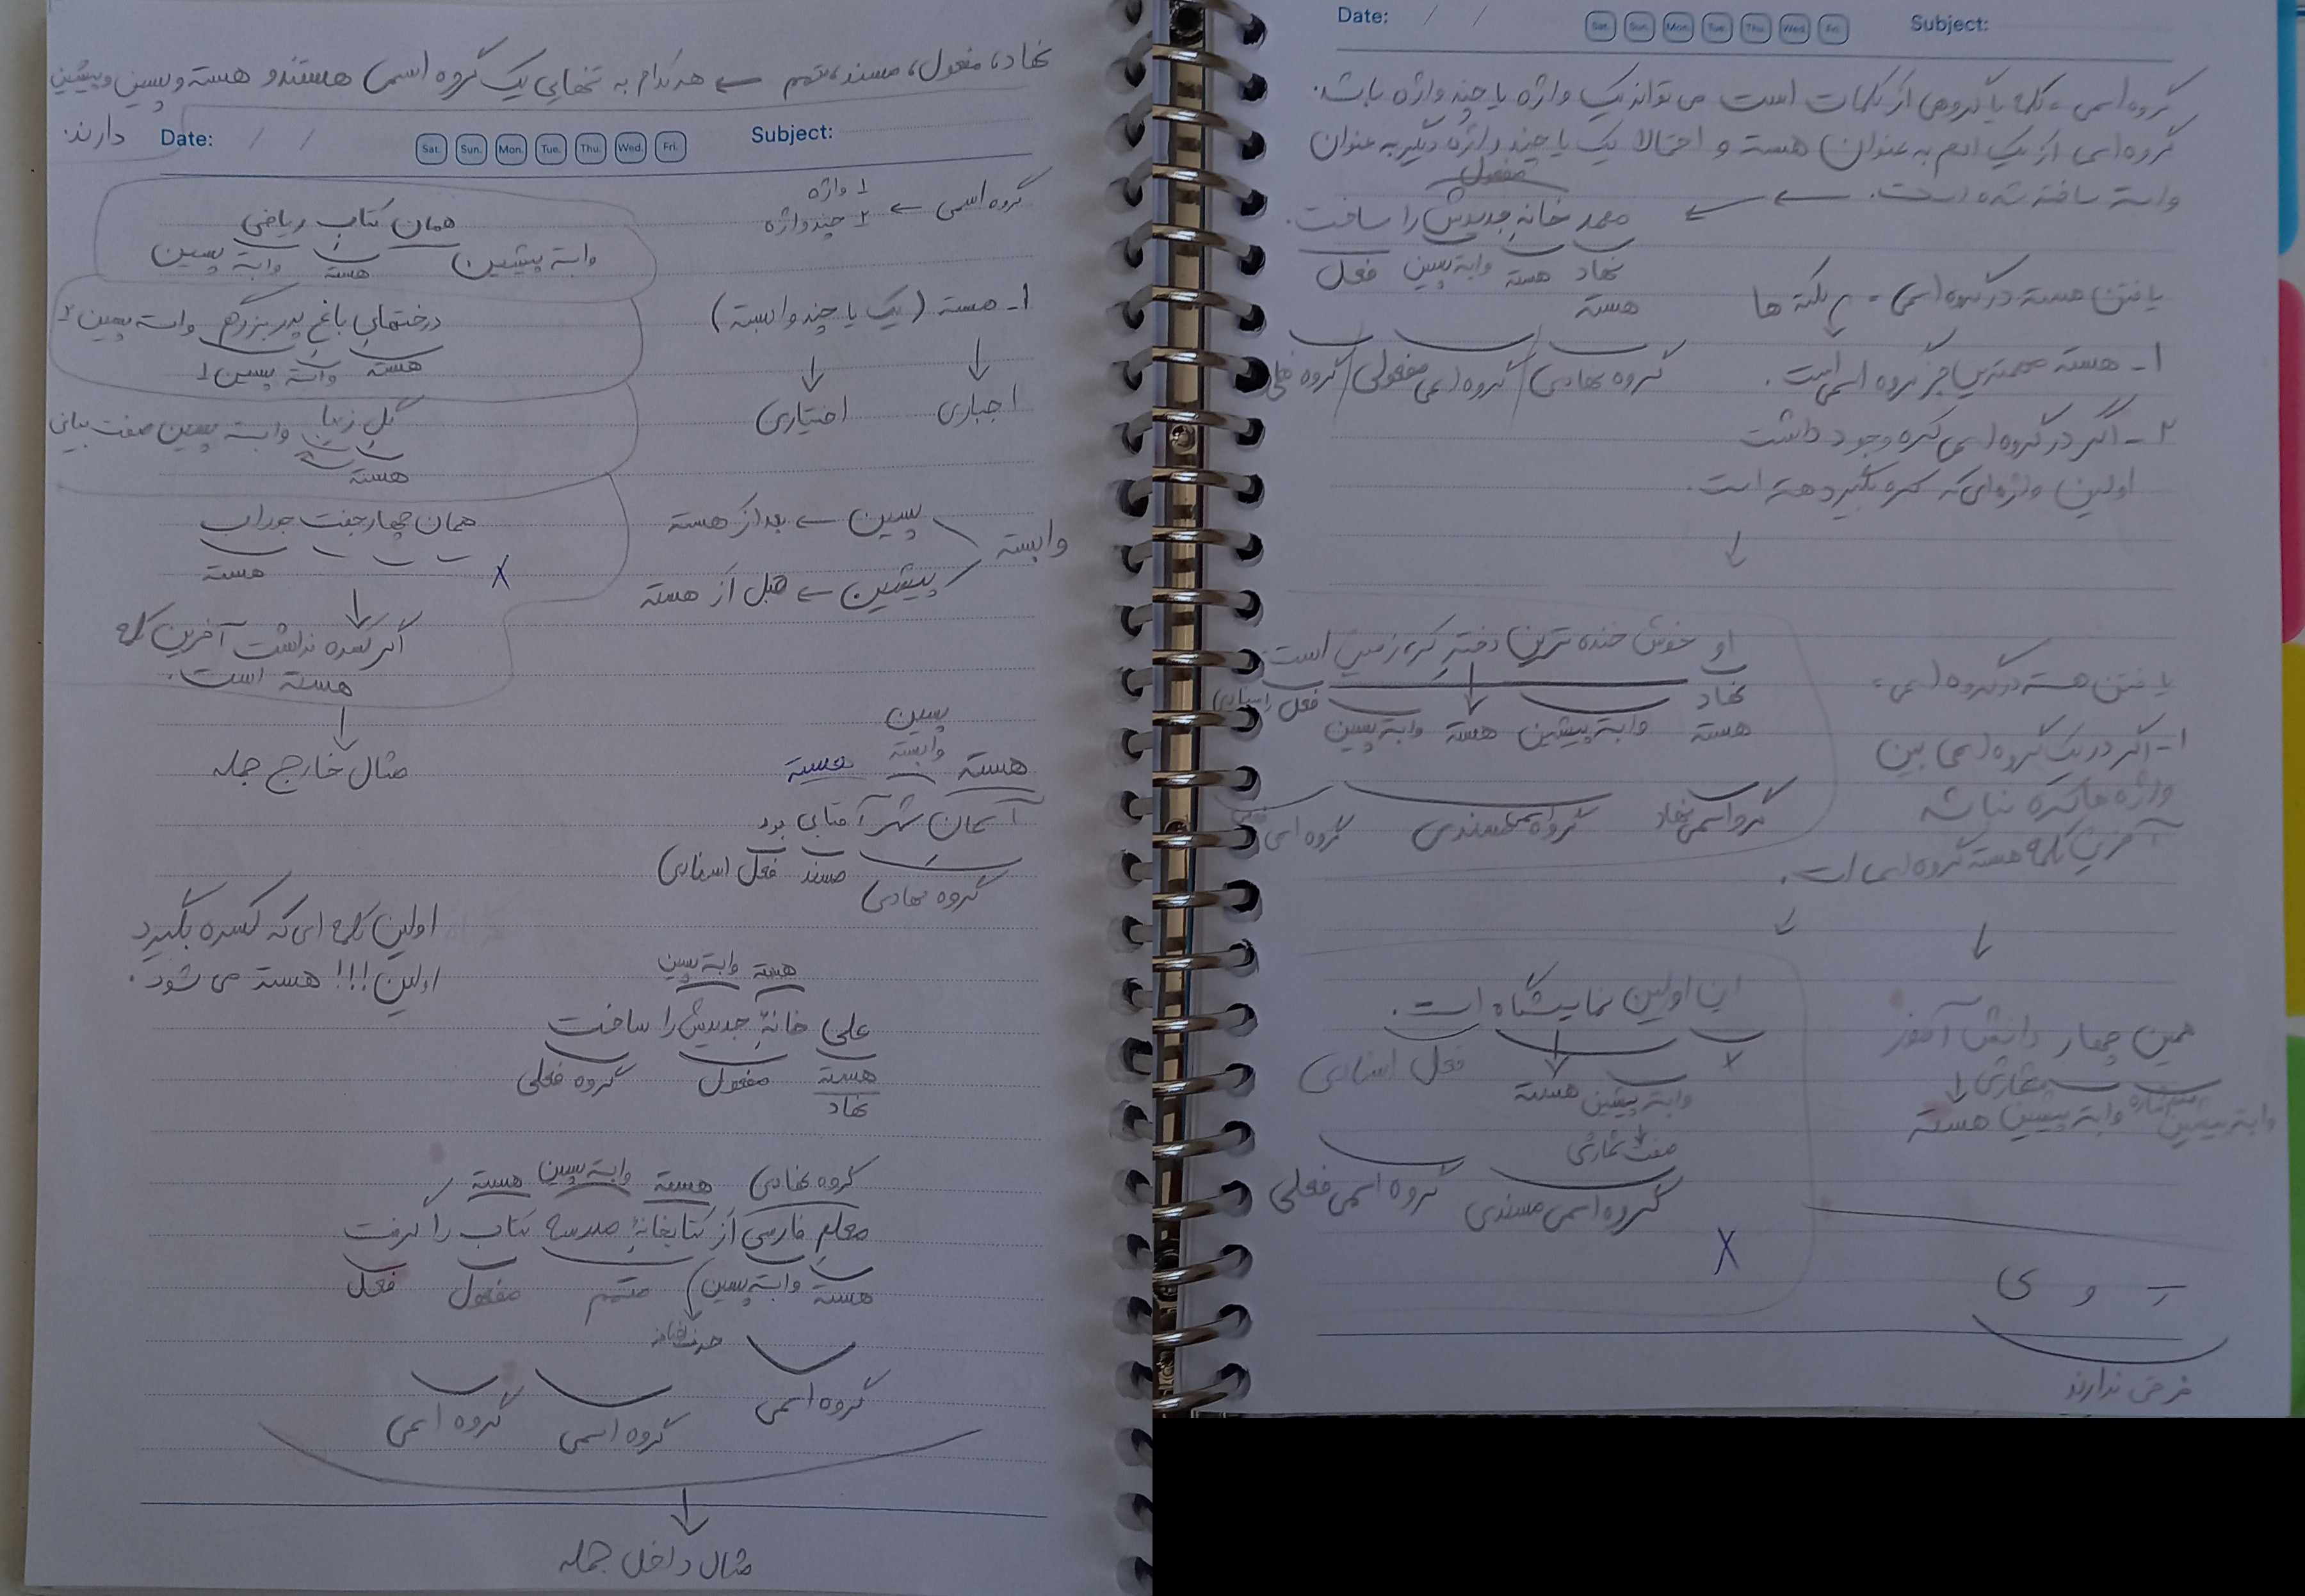 Date: / / Sat. Sun. Mon. Tue. Thu. Wed. Fri. Subject:
گروه اسمی = کلمه یا گروهی از کلمات است می تواند یک واژه یا چند واژه باشد.
گروه اسمی از یک اسم به عنوان هسته و احتمالا یک یا چند واژه دیگر به عنوان
وابسته ساخته شده است. ← ←
مفعول
محمد خانهِ جدیدش را ساخت.
نهاد هسته وابسته پسین فعل
هسته
گروه نهادی / گروه اسمی مفعولی / گروه فعلی
یافتن هسته در گروه اسمی = نکته ها
۱- هسته مهمترین جز گروه اسمی است.
۲- اگر در گروه اسمی کسره وجود داشت
اولین واژه ای که کسره بگیرد هسته است.
↓
او خوش خنده ترین دختر کره زمین است.
نهاد فعل اسنادی
هسته وابسته پیشین هسته وابسته پسین
گروه اسمی نهاد گروه اسمی مسندی گروه اسمی
یافتن هسته در گروه اسمی =
۱- اگر در یک گروه اسمی بین
واژه ها کسره نباشد
آخرین کلمه هسته گروه اسمی است.
↓
همین چهار دانش آموز
شمارشی
وابسته پیشین وابسته پیشین هسته
این اولین نمایشگاه است.
فعل اسنادی
وابسته پیشین هسته
صفت شمارشی
گروه اسمی مسندی گروه اسمی فعلی
X
ـِ و ی
فرقی ندارند
نهاد، مفعول، مسند، متمم ← هر کدام به تنهایی یک گروه اسمی هستند و هسته و پسین و پیشین
دارند.
Date: / / Sat. Sun. Mon. Tue. Thu. Wed. Fri. Subject:
گروه اسمی ← ۱ واژه
۲ چند واژه
۱- هسته (یک یا چند وابسته)
↓ ↓
اجباری اختیاری
وابسته
پسین ← بعد از هسته
پیشین ← قبل از هسته
همان کتاب ریاضی
وابسته پیشین هسته وابسته پسین
درختهای باغ پدربزرگم وابسته پسین ۲
هسته وابسته پسین ۱
گل زیبا وابسته پسین صفت بیانی
هسته
همان چهار جفت جوراب
هسته X
↓
اگر کسره نداشت آخرین کلمه
هسته است.
↓
مثال خارج جمله
پسین
هسته وابسته هسته
آسمان شهر آفتابی بود
گروه نهادی مسند فعل اسنادی
اولین کلمه ای که کسره بگیرد
اولین!!! هسته می شود.
هسته وابسته پسین
علی خانهٔ جدیدش را ساخت
هسته مفعول گروه فعلی
نهاد
گروه نهادی هسته وابسته پسین هسته
معلم فارسی از کتابخانهٔ مدرسه کتاب را گرفت
هسته وابسته پسین متمم مفعول فعل
حرف اضافه
گروه اسمی گروه اسمی گروه اسمی
↓
مثال داخل جمله